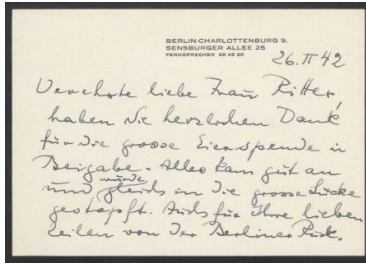 BERLIN-CHARLOTTENBURG 9,
SENSBURGER ALLEE 25
FERNSPRECHER
26. II 42
Verehrte liebe Frau Ritter!
haben Sie herzlichen Dank
für die grosse Eierspende u
Beigabe. Alles kam gut an
wurde
und gleich in die grosse Lücke
gestopft. Auch für Ihre lieben
Zeilen von der Berliner